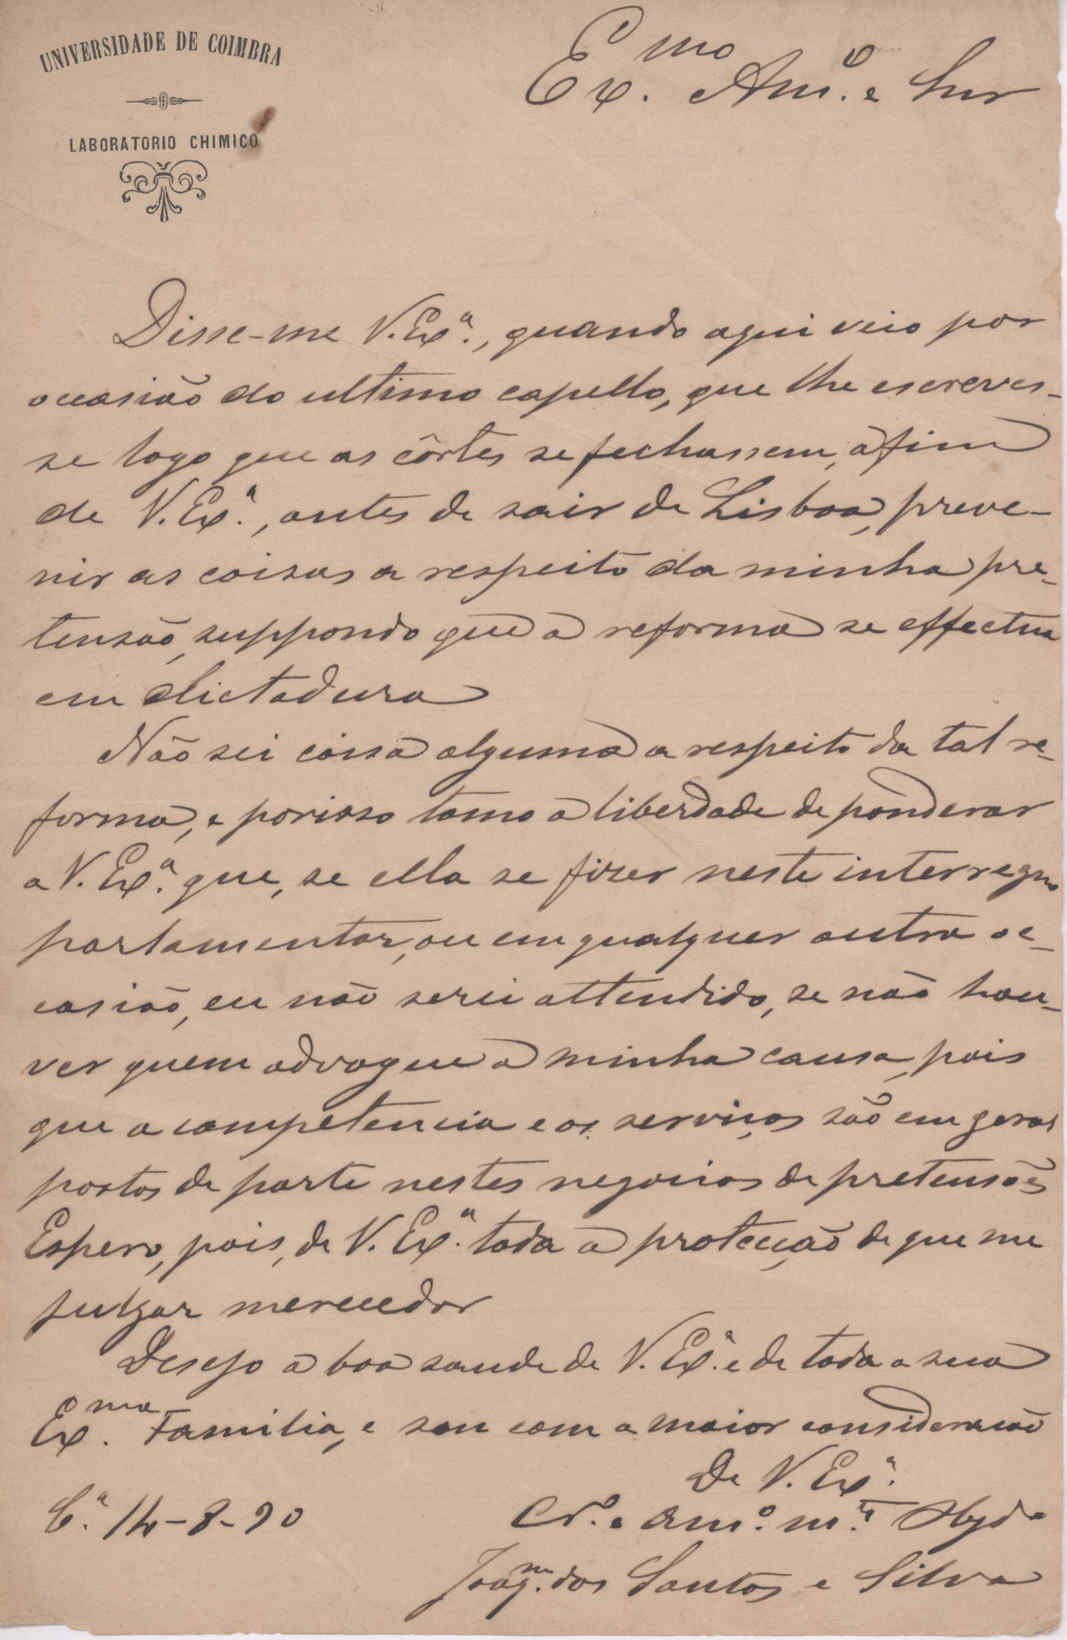 UNIVERSIDADE DE COIMBRA
LABORATORIO CHIMICO
Ex.mo Am.º e Snr
Disse-me V. Ex.ª, quando aqui veio por
occasião do ultimo capello, que lhe escreves-
se logo que as côrtes se fechassem, àfim
de V. Ex.ª, antes de sair de Lisboa, preve-
nir as coisas a respeito da minha pre-
tensão, suppondo que a reforma se effectua
em dictadura
Não sei coisa alguma a respeito da tal re-
forma, e porisso tomo a liberdade de ponderar
a V. Ex.ª que, se ella se fizer neste interregno
parlamentar, ou em qualquer outra oc-
casião, eu não serei attendido, se não hou-
ver quem advogue a minha causa, pois
que a competencia e os serviços são em geral
postos de parte nestes negocios de pretensões
Espero, pois, de V. Ex.ª toda a protecção de que me
julgar merecedor
Desejo a boa saude de V. Ex.ª e de toda a sua
Ex.ma Familia, e sou com a maior consideração
De V. Ex.ª
C.ª 14-8-90
Cr.º e Am.º m.to Obgd.º
Joaq.m dos Santos e Silva